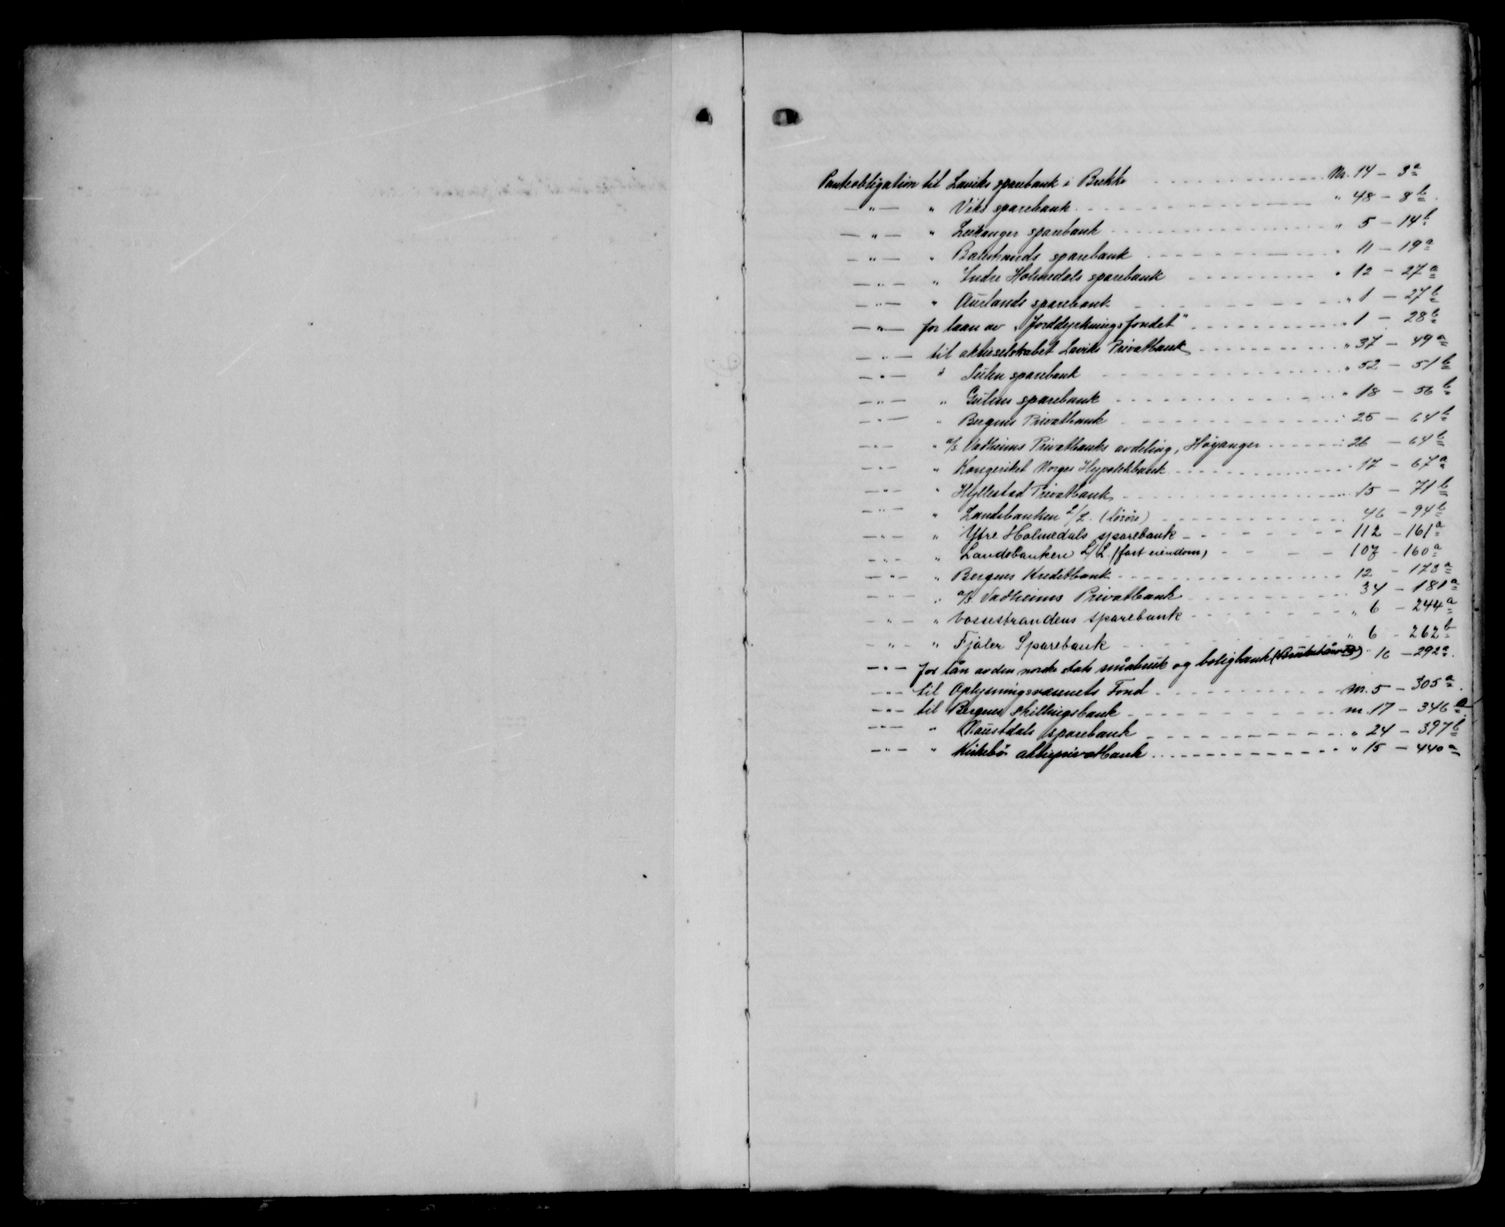 Panteobligation til Laviks sparebank i Brekke - - - Nr. 14 - 3a
— " — " Viks sparebank - - - " 48 - 8b
— " — " Leikanger sparebank - - - " 5 - 14b
— " — " Balestrands sparebank - - - " 11 - 19a
— " — " Indre Holmedals sparebank - - - " 12 - 27a
— " — " Aurlands sparebank - - - " 1 - 27b
— " — for laan av "Jorddyrkningsfondet" - - - " 1 - 28b
— " — til aktieselskabet Laviks Privatbank - - - " 37 - 49a
— " — " Sulen sparebank - - - " 52 - 51b
— " — " Gulens sparebank - - - " 18 - 56b
— " — " Bergens Privatbank - - - " 25 - 64b
— " — " a/s Vadheims Privatbanks avdeling, Høyanger - - - 26 - 64b
— " — " Kongeriket Norges Hypotekbank - - - 17 - 67a
— " — " Hyllestad Privatbank - - - " 15 - 71b
— " — " Landsbanken L/L. (Løsøre) - - - 46 - 94b
— " — " Ytre Holmedals sparebank - - - 112 - 161a
— " — " Landsbanken L/L (fast eiendom) - - - 107 - 160a
— " — " Bergens Kreditbank - - - 12 - 173a
— " — " a/s Vadheims Privatbank - - - 34 - 181a
— " — " Vossestrandens sparebank - - - " 6 - 244a
— " — " Fjaler Sparebank - - - " 6 - 262b
— " — for lån av den norske stats småbruk og boligbank - 16 - 292a
— " — til Oplysningsvæsenets Fond - - - Nr. 5 - 305a
— " — til Bergens Skillingsbank - - - nr. 17 - 346a
— " — " Naustdals sparebank - - - " 24 - 397b
— " — " Kirkebø aktieprivatbank - - - " 15 - 440a